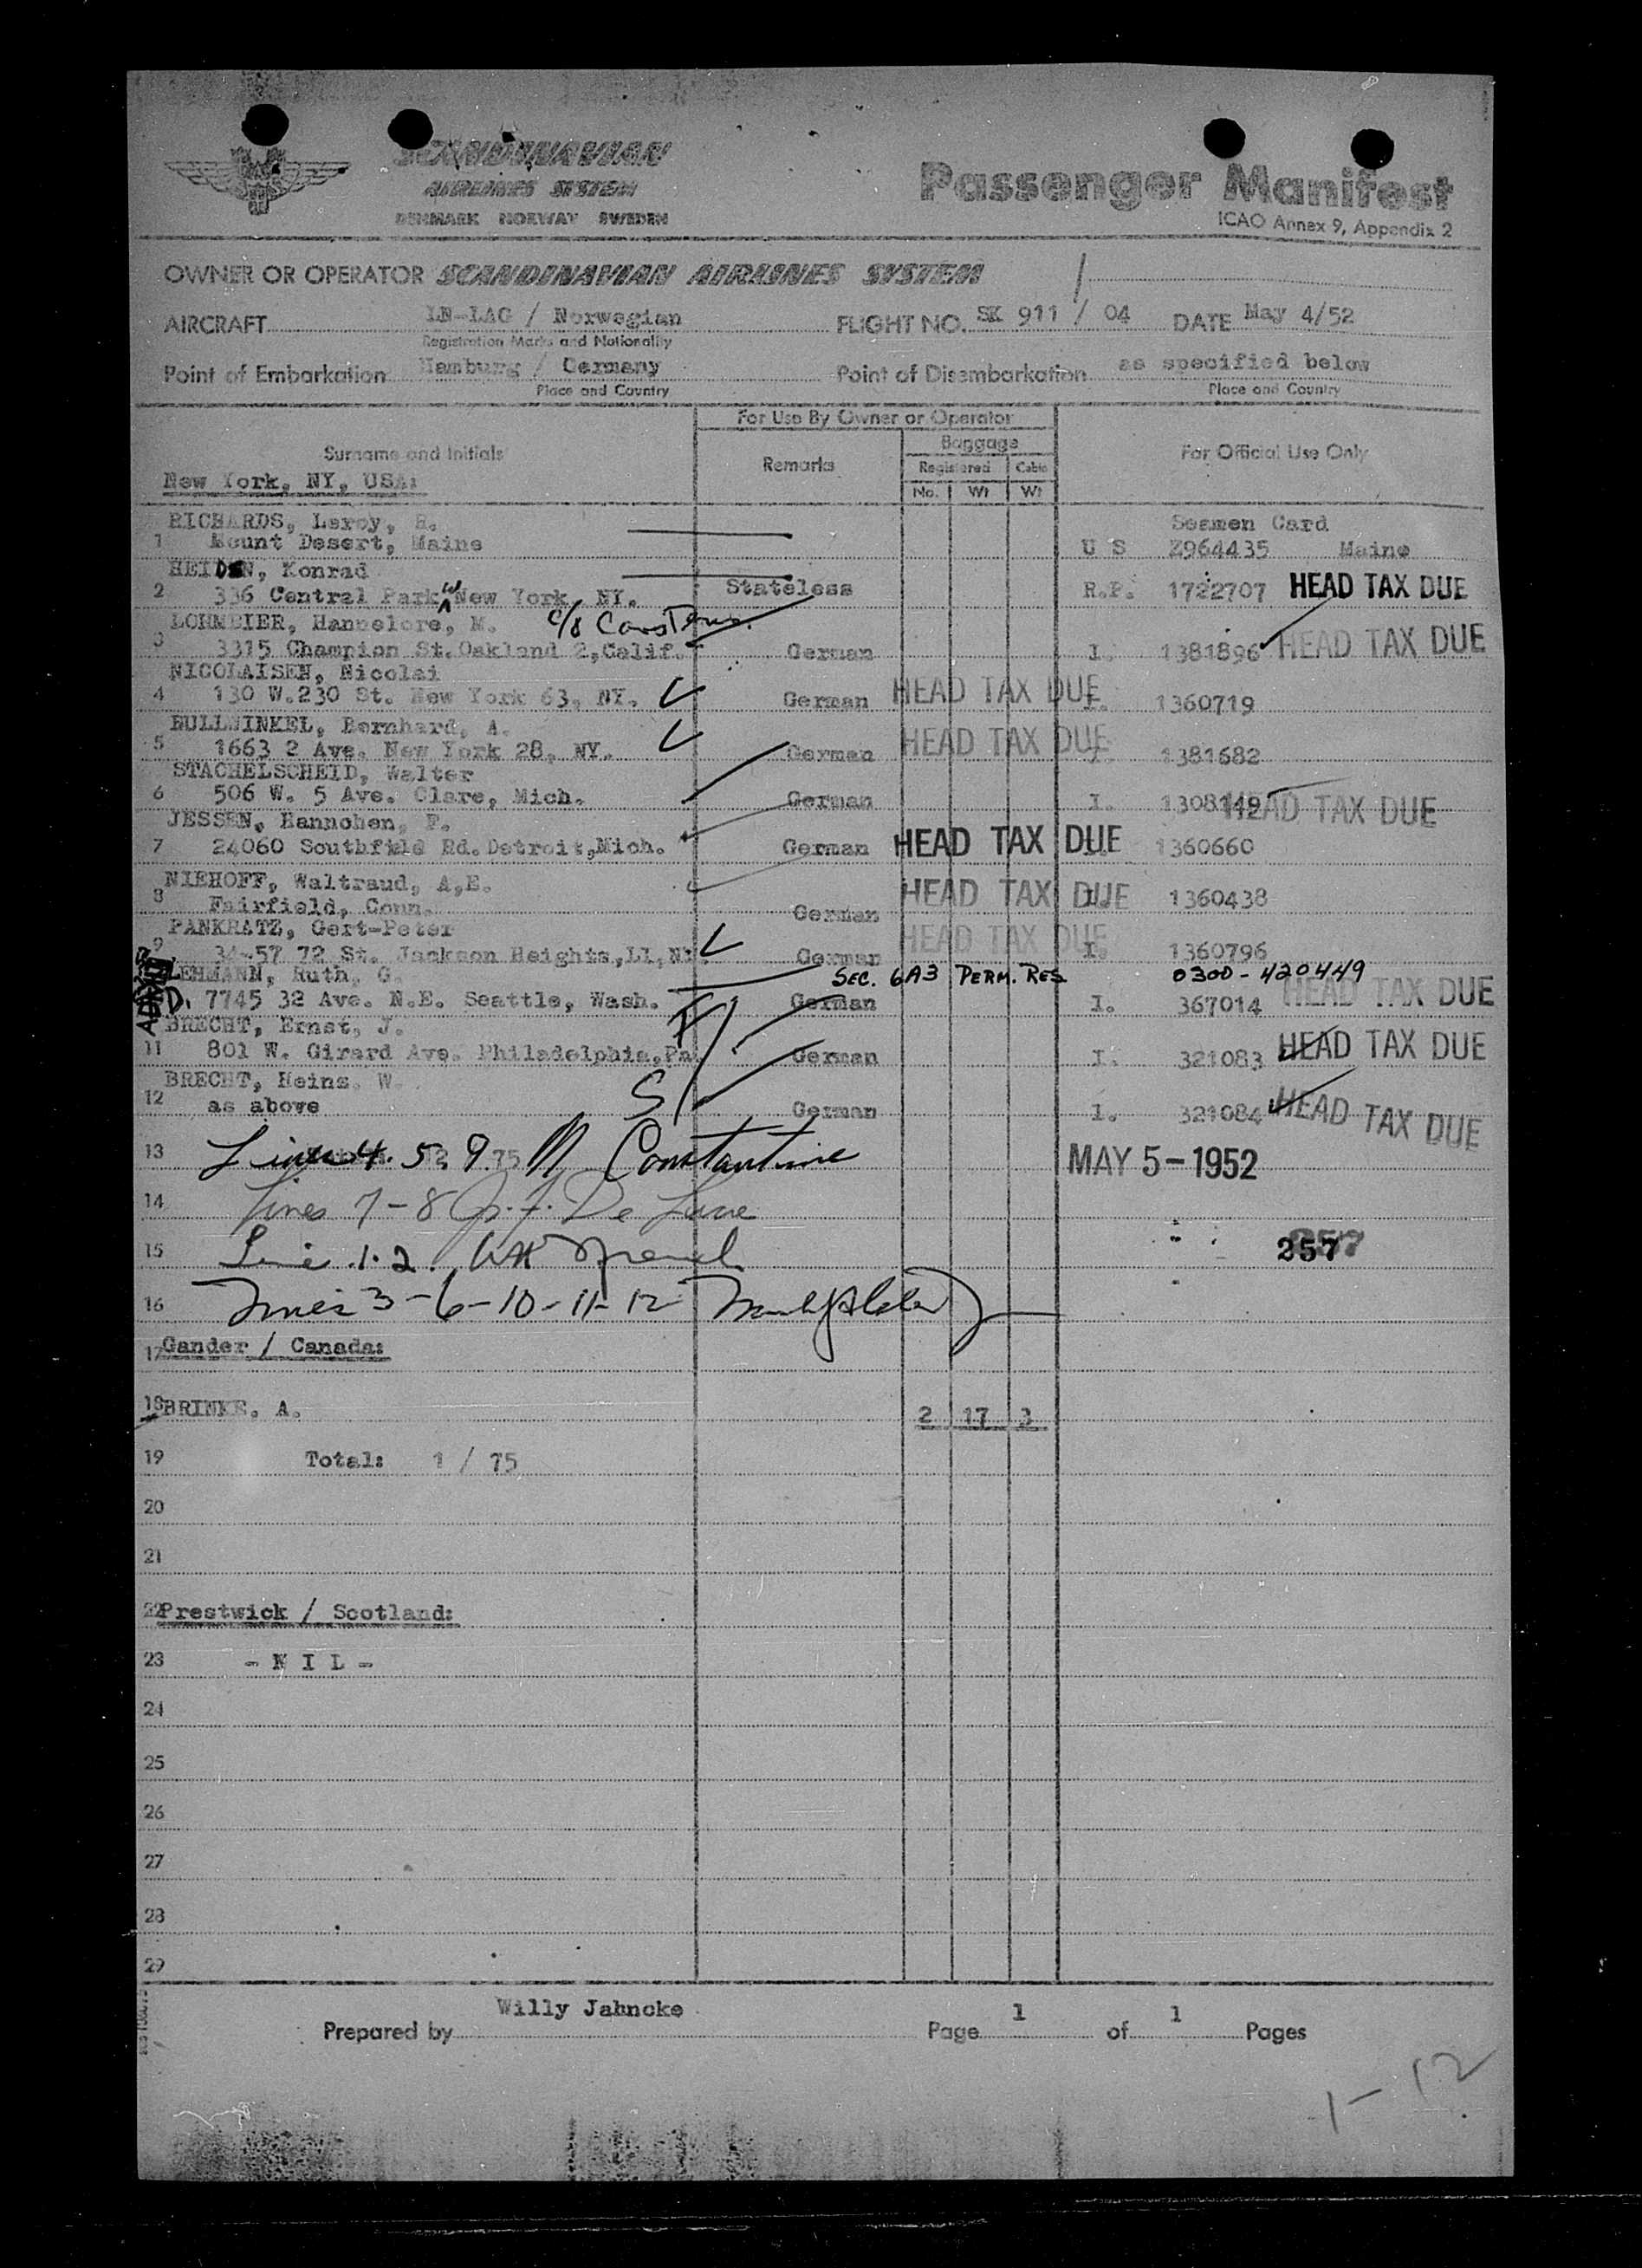 SCANDINAVIAN
AIRLINES SYSTEM
DENMARK NORWAY SWEDEN
Passenger Manifest
ICAO Annex 9, Appendix 2
OWNER OR OPERATOR SCANDINAVIAN AIRLINES SYSTEM
AIRCRAFT LN-LAG / Norwegian FLIGHT NO. SK 911 / 04 DATE May 4/52
Registration Marks and Nationality
Point of Embarkation Hamburg / Germany Point of Disembarkation as specified below
Place and Country Place and Country
For Use By Owner or Operator
Surname and Initials Remarks Baggage For Official Use Only
Registered Cabin
New York, NY, USA: No. Wt Wt
RICHARDS, Leroy, H. Seamen Card
1 Mount Desert, Maine U S Z964435 Maine
HEIDEN, Konrad
2 336 Central Park W New York, NY. Stateless R.P. 1722707 HEAD TAX DUE
LOHMEIER, Hannelore, M. c/o Carstens.
3 3315 Champion St. Oakland 2, Calif. German I. 1381896 HEAD TAX DUE
NICOLAISEN, Nicolai
4 130 W.230 St. New York 63, NY. German HEAD TAX DUE I. 1360719
BULLWINKEL, Bernhard, A.
5 1663 2 Ave. New York 28, NY. German HEAD TAX DUE 1381682
STACHELSCHEID, Walter
6 506 W. 5 Ave. Clare, Mich. German I. 1308149 HEAD TAX DUE
JESSEN, Hannchen, F.
7 24060 Southfield Rd. Detroit, Mich. German HEAD TAX DUE 1360660
NIEHOFF, Waltraud, A,E.
8 Fairfield, Conn. German HEAD TAX DUE 1360438
PANKRATZ, Gert-Peter
9 34-57 72 St. Jackson Heights, LI, NY. German HEAD TAX DUE I. 1360796
LEHMANN, Ruth, G. SEC. 6A3 PERM. RES 0300-420449
7745 32 Ave. N.E. Seattle, Wash. German I. 367014 HEAD TAX DUE
BRECHT, Ernst, J.
11 801 W. Girard Ave. Philadelphia, Pa. German I. 321083 HEAD TAX DUE
BRECHT, Heinz. W.
12 as above German I. 321084 HEAD TAX DUE
13 Lines 4. 5. 9. Constantine MAY 5-1952
14 Lines 7-8 J. F. De Lane
15 Line 1.2. 257
16 Lines 3-6-10-11-12
17 Gander / Canada:
18 BRINKE, A. 2 17 3
19 Total: 1 / 75
20
21
22 Prestwick / Scotland:
23 - N I L -
24
25
26
27
28
29
Prepared by Willy Jahncke Page 1 of 1 Pages
1-12